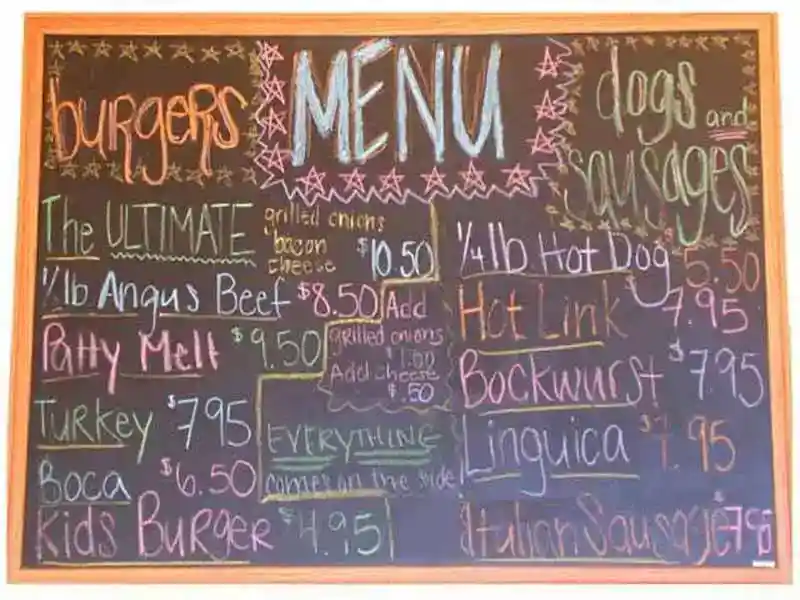 MENU
burgers
The ULTIMATE grilled onions bacon cheese $10.50
½lb Angus Beef $8.50
Patty Melt $9.50
Turkey $7.95
Boca $6.50
Kids Burger $4.95
Add
grilled onions
$1.00
Add cheese
$.50
EVERYTHING
comes on the side
dogs and
sausages
¼lb Hot Dog $5.50
Hot Link $7.95
Bockwurst $7.95
Linguica $7.95
Italian Sausage $7.95